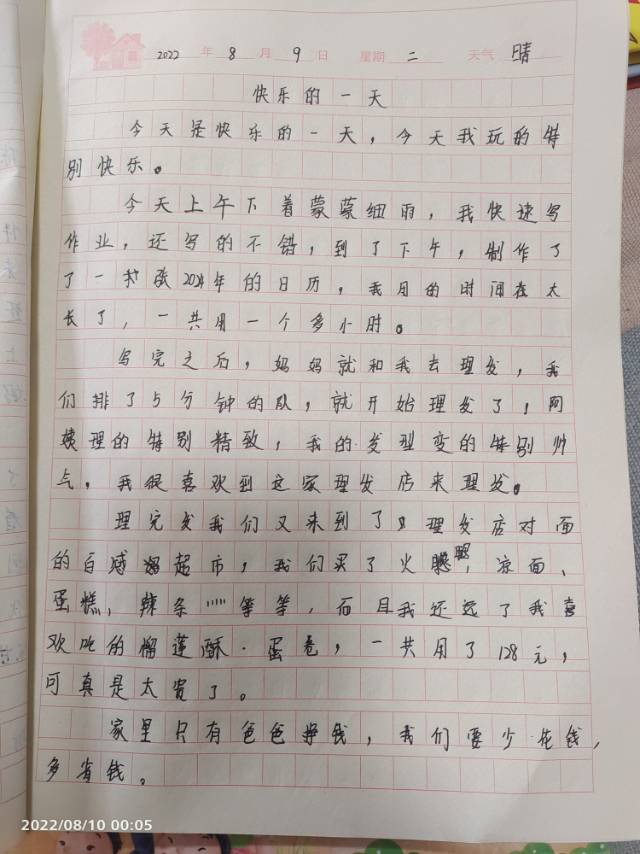 2022 年 8 月 9 日 星期 二 天气 晴
快乐的一天
今天是快乐的一天，今天我玩的特
别快乐。
今天上午下着蒙蒙细雨，我快速写
作业，还写的不错，到了下午，制作了
了一张2024年的日历，我用的时间在太
长了，一共用一个多小时。
写完之后，妈妈就和我去理发，我
们排了5分钟的队，就开始理发了，阿
姨理的特别精致，我的发型变的特别帅
气。我很喜欢到这家理发店来理发。
理完发我们又来到了理发店对面
的百感超市，我们买了火聰，凉面、
蛋糕，辣条……等等，而且我还选了我喜
欢吃的榴莲酥·蛋卷，一共用了128元，
可真是太贵了。
家里只有爸爸挣钱，我们要少花钱，
多省钱。
2022/08/10 00:05